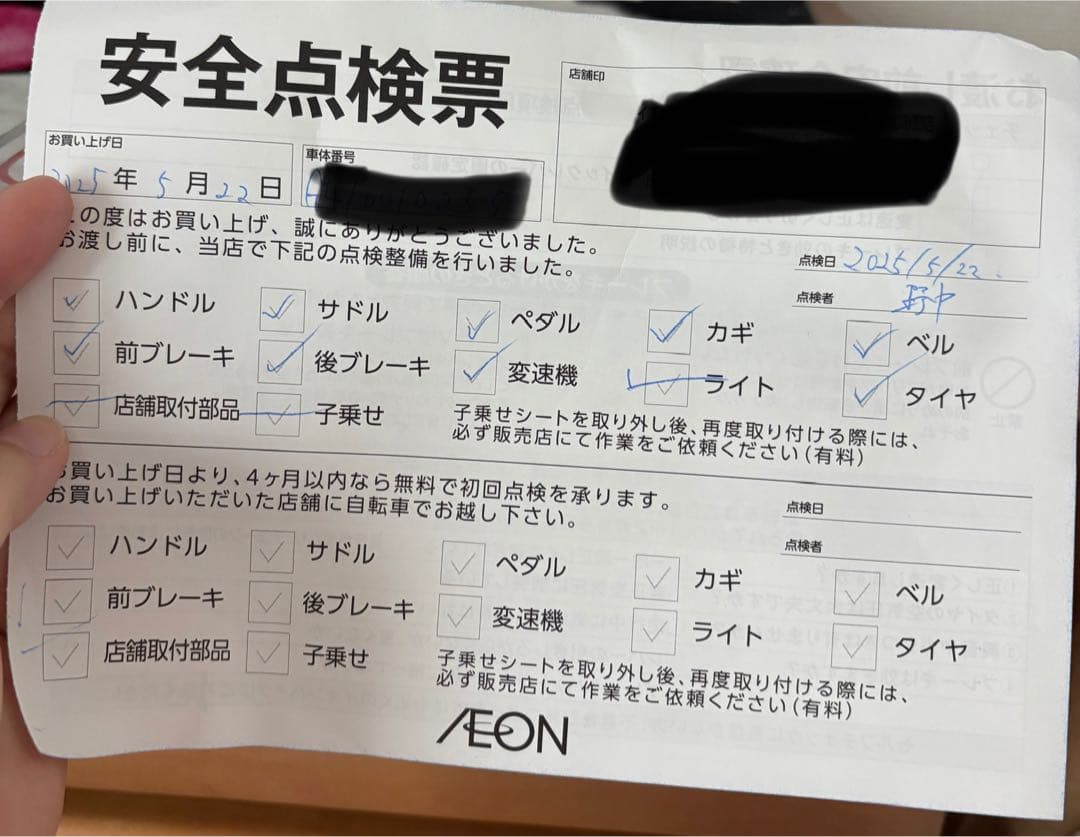 安全点検票
店舗印
お買い上げ日
2025年 5月22日
車体番号
この度はお買い上げ、誠にありがとうございました。
お渡し前に、当店で下記の点検整備を行いました。
点検日 2025/5/22
点検者 野中
ハンドル サドル ペダル カギ ベル
前ブレーキ 後ブレーキ 変速機 ライト タイヤ
店舗取付部品 子乗せ
子乗せシートを取り外し後、再度取り付ける際には、
必ず販売店にて作業をご依頼ください(有料)
お買い上げ日より、4ヶ月以内なら無料で初回点検を承ります。
お買い上げいただいた店舗に自転車でお越し下さい。
点検日
点検者
ハンドル サドル ペダル カギ ベル
前ブレーキ 後ブレーキ 変速機 ライト タイヤ
店舗取付部品 子乗せ
子乗せシートを取り外し後、再度取り付ける際には、
必ず販売店にて作業をご依頼ください(有料)
ÆON